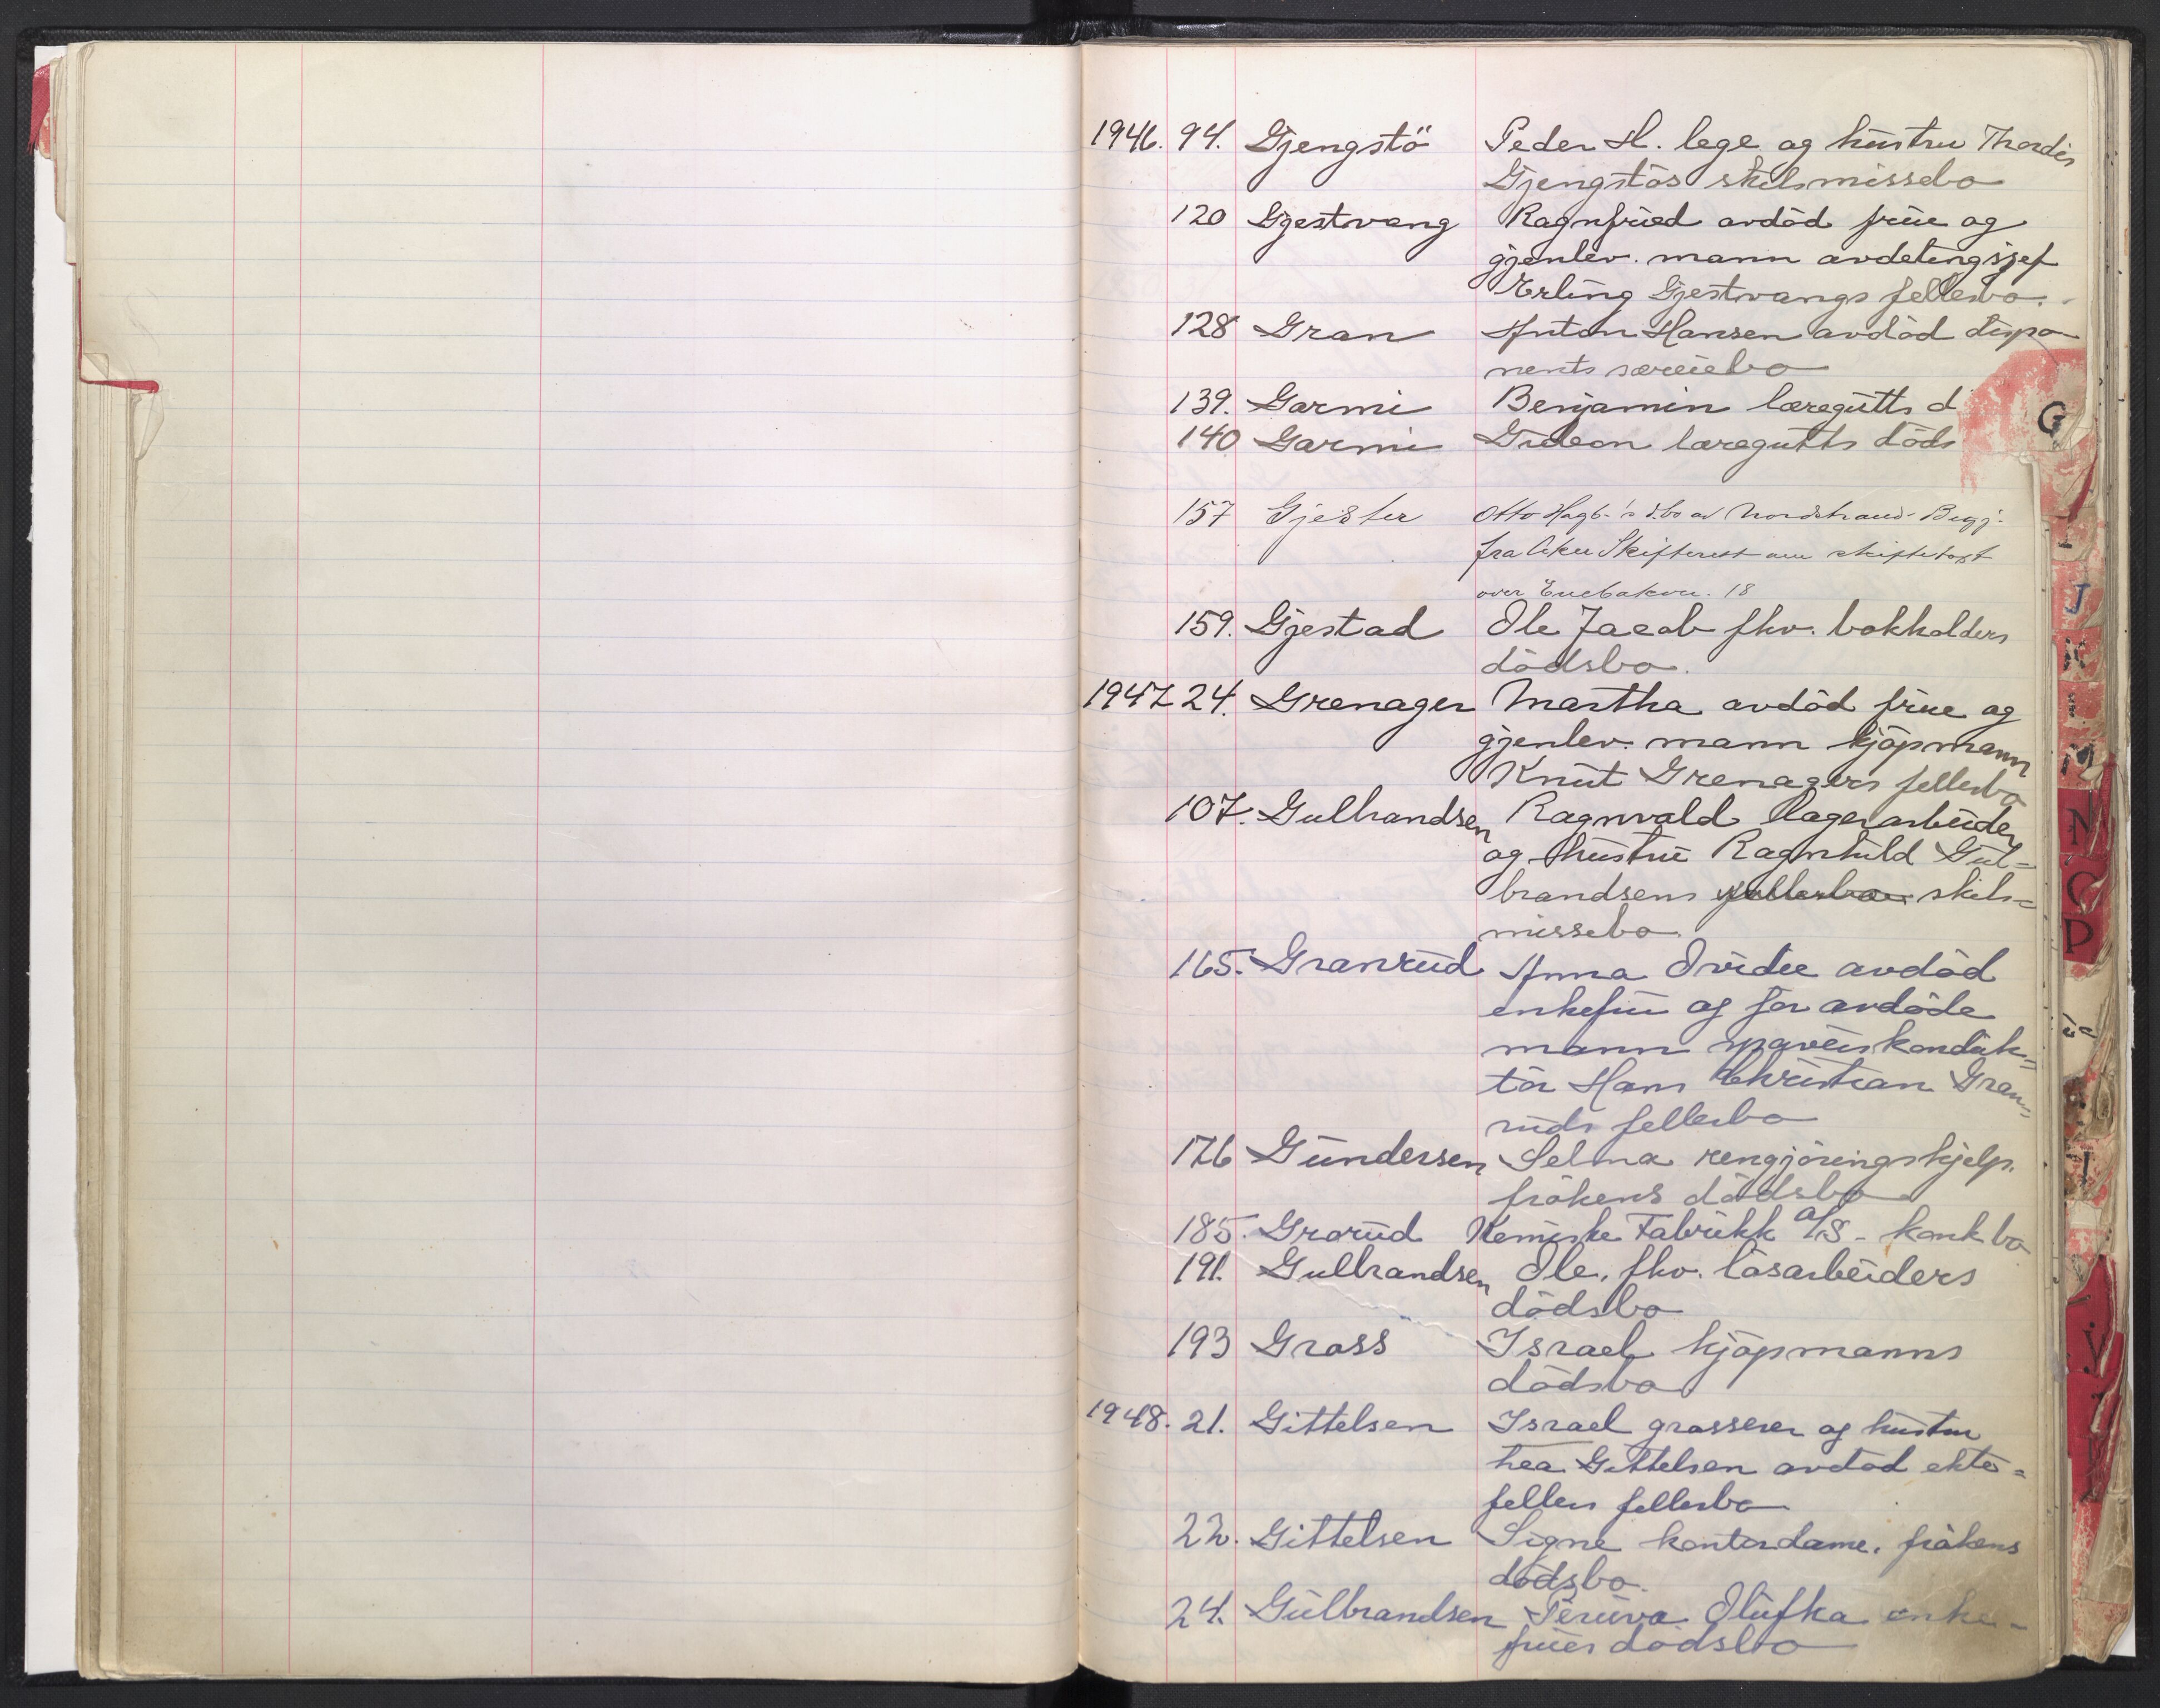 1946. 94. Gjengstö Peder H. lege og hustru Thordis
Gjengstös skilsmissebo
120 Gjestvang Ragnfried avdöd frue og
gjenlev. mann avdelingsjef
Erling Gjestvangs fellesbo.
128 Gran Anton Hansen avdöd dispo
nents særeiebo
139. Garmi Benjamin læregutts d
140 Garmi Gideon læregutts döds
G
157 Gjester Otto Hagb.'s d.bo av Nordstrand - Begj.
fra Aker Skifterett om skiftetakst
over Enebakvn. 18
159. Gjestad Ole Jacob fhv. bokholders
dödsbo.
1947 24. Grenager Martha avdöd frue og
gjenlev. mann kjöpmann
Knut Grenagers fellesbo
107. Gulbrandsen Ragnvald lagerarbeider
og hustru Ragnhild Gul-
brandsens fellesbo skils=
missebo.
165. Granrud Anna Ovidee avdöd
enkefru og for avdöde
mann sporveiskonduk=
tör Hans Christian Gran=
ruds fellesbo
176 Gundersen Selma rengjöringshjelp.
frökens dödsbo
185. Grorud Kemiske Fabrikk A/S - konkbo
191. Gulbrandsen Ole, fhv. lösarbeiders
dödsbo
193 Grass Israel kjöpmanns
dödsbo
1948. 21. Gittelsen Israel grosserer og hustru
Thea Gittelsen avdöd ekte=
fellers fellesbo
22. Gittelsen Signe kontordame, frökens
dödsbo.
24. Gulbrandsen Olufka enke-
frues dödsbo
J
K
M
N
O
P